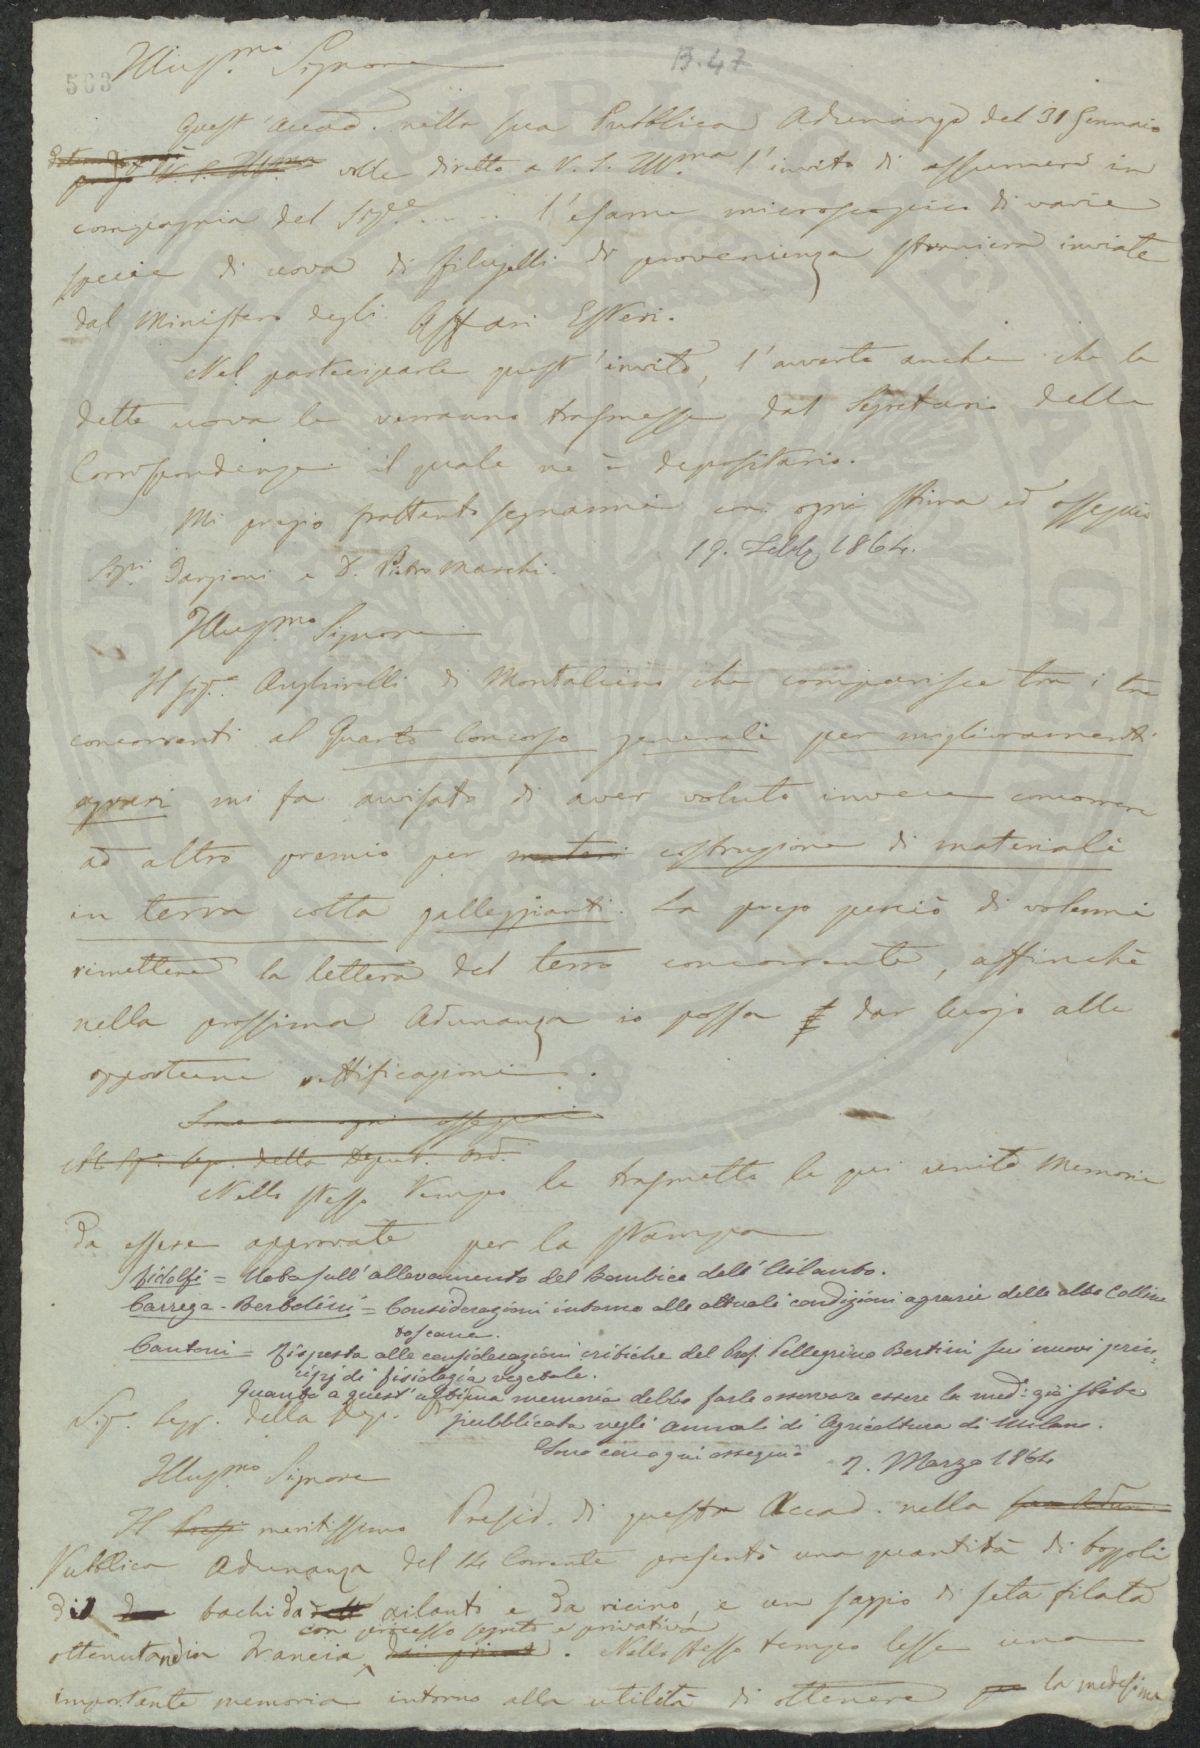 B. 47
563
Illus.mo Signore
Quest'Accad. nella sua Pubblica Adunanza del 31 Gennaio
volle diretto a V. S. Ill.ma l'invito di assumere in
compagnia del Sig.re ...... l'esame microscopico di varie
specie di uova di filugelli di provenienza straniera inviate
dal Ministero degli Affari Esteri.
Nel parteciparle quest'invito, l'avverto anche che le
dette uova le verranno trasmesse dal Segretario delle
Corrispondenze il quale ne è depositario.
Mi pregio frattanto segnarmi con ogni stima ed ossequio
19. Febb. 1864.
Sigri Targioni e D. Pietro Marchi.
Illus.mo Signore
Il Sig.re Anghirelli di Montalcino che comparisce tra i tre
concorrenti al Quarto Concorso generale per miglioramenti
agrari mi fa avvisato di aver voluto invece concorrere
ad altro premio per materi costruzione di materiali
in terra cotta galleggianti. La prego perciò di volermi
rimettere la lettera del terzo concorrente, affinchè
nella prossima Adunanza io possa dar luogo alle
opportune rettificazioni.
Sono con ogni ossequio
Al Sig. Seg. della Deput. Ord.
Nello stesso tempo le trasmetto le qui unite Memorie
da essere approvate per la stampa
Ridolfi = Nota sull'allevamento del Bombice dell'Ailanto.
Carrega-Bertolini = Considerazioni intorno alle attuali condizioni agrarie delle alte colline
toscane.
Cantoni = Risposta alle considerazioni critiche del Prof. Pellegrino Bertini sui nuovi prin-
cipj di fisiologia vegetale.
Quanto a quest'ultima memoria debbo farle osservare essere la med.a già stata
pubblicata negli annali di Agricoltura di Milano.
Sig.re Segr. della Dep.
Sono con ogni ossequio
7. Marzo 1864
Illus.mo Signore
Il Presi meritissimo Presid. di questa Accad. nella sua Adun.
Pubblica Adunanza del 14 Corrente presentò una quantità di bozzoli
di bachi da ailanto e da ricino, e un saggio di seta filata
con processo segreto e privativa
ottenuta in Francia. Nello stesso tempo lesse una
importante memoria intorno alla utilità di ottenere la medesima